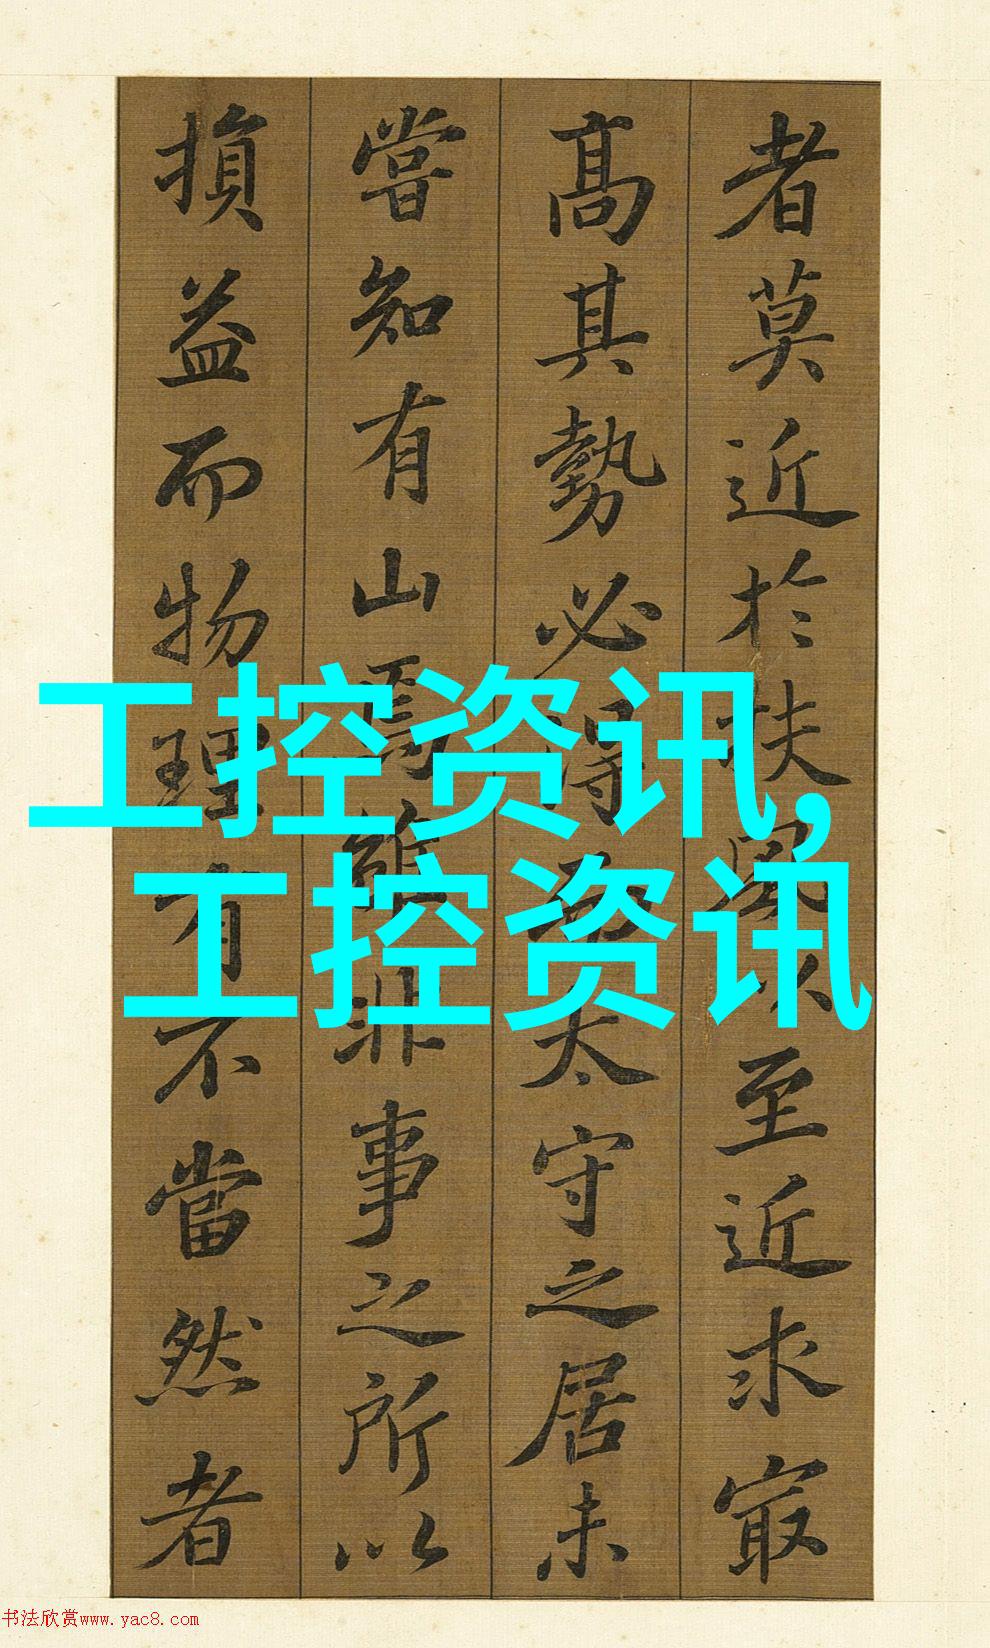 者莫近於扶風以至近求㝡
髙其勢必得而太守之居未
嘗知有山焉雖非事之所以
損益而物理有不當然者
工控资讯,
工控资讯
书法欣赏www.yac8.com